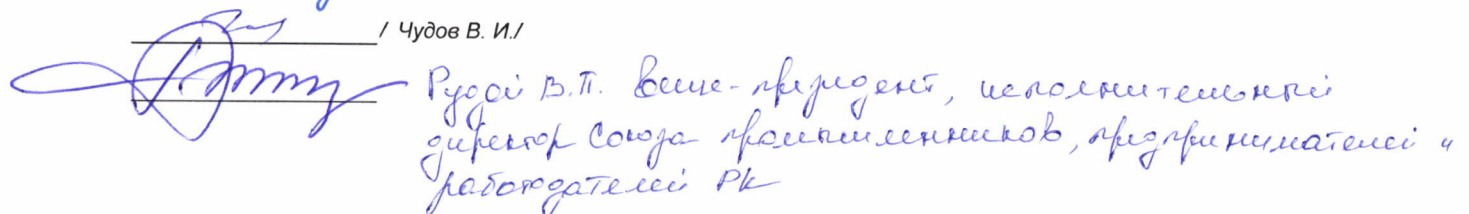 / Чудов В. И./
Рудой В.П. Вице-президент, исполнительный
директор Союза промышленников, предпринимателей и
работодателей РК